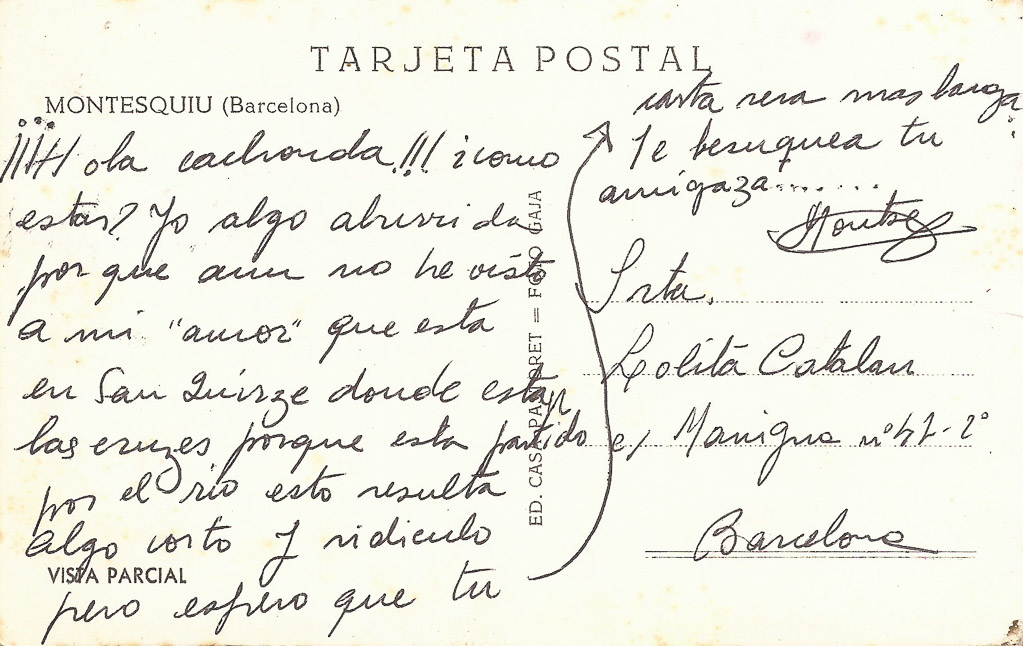 TARJETA POSTAL
MONTESQUIU (Barcelona)
¡¡¡H ola cachonda!!! ¿como
estas? Yo algo aburrida
por que aun no he visto
a mi "amor" que esta
en San Quirze donde estan
las cruzes porque esta partido
por el rio esto resulta
algo corto y ridiculo
VISTA PARCIAL
pero espero que tu
carta sera mas larga
Te besuquea tu
amigaza.......
Montse
ED. CASA PARORET = FOTO GAJA
Srta.
Lolita Catalan
c/ Manigua nº 41-2º
Barcelona